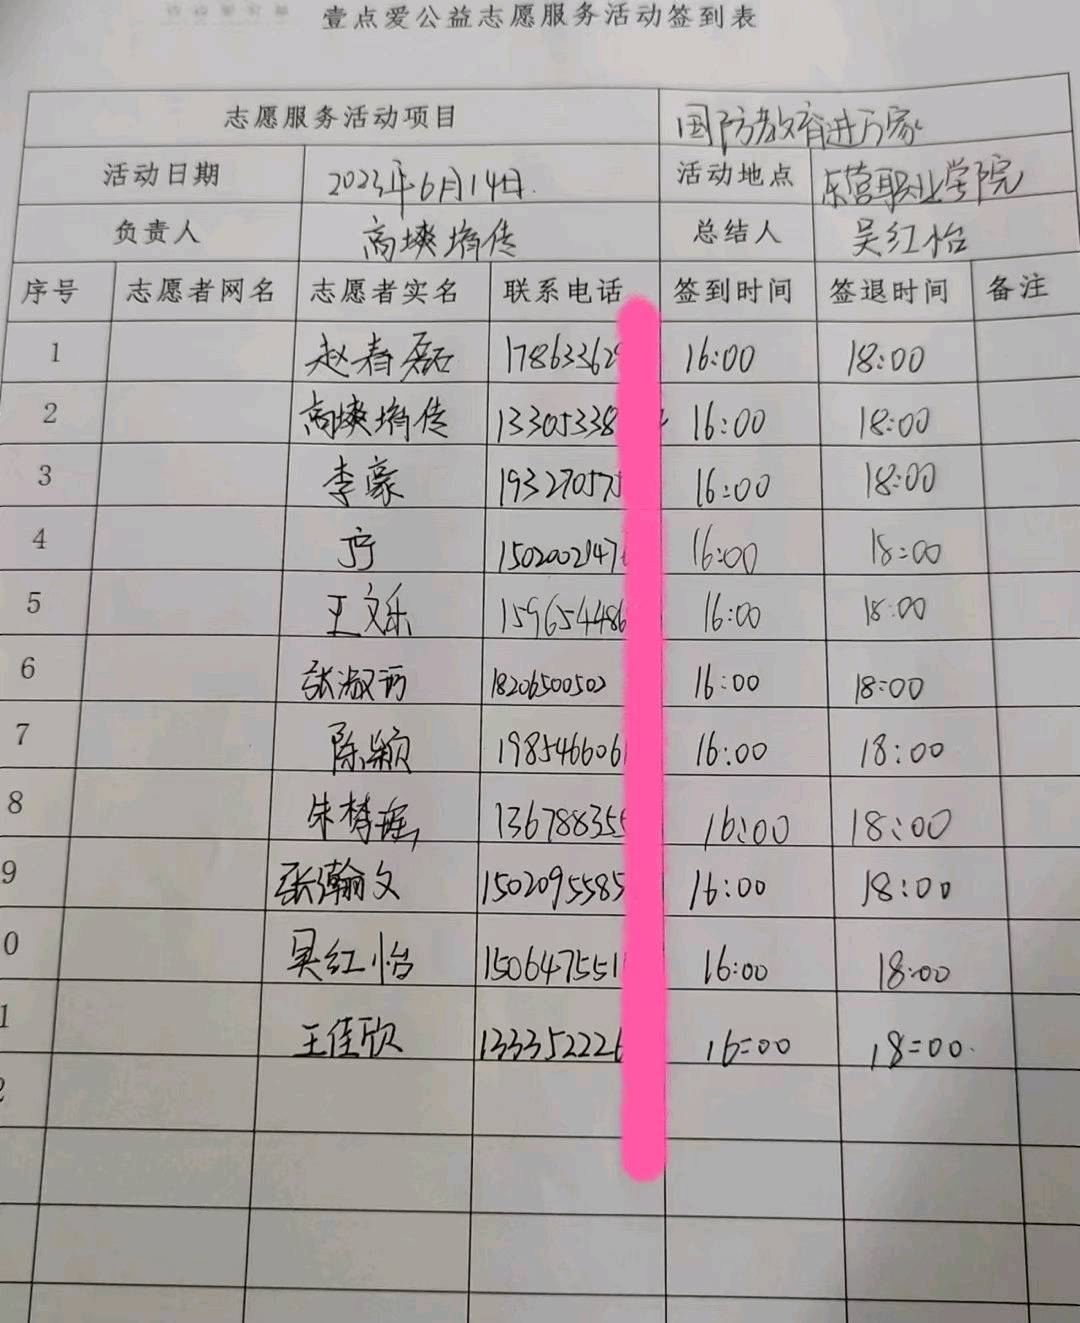 壹点爱公益志愿服务活动签到表
志愿服务活动项目 国防教育进万家
活动日期 2023年6月14日. 活动地点 东营职业学院
负责人 高塽堉传 总结人 吴红怡
序号 志愿者网名 志愿者实名 联系电话 签到时间 签退时间 备注
1 赵春磊 17863362 16:00 18:00
2 高塽堉传 13305338 16:00 18:00
3 李豪 193270575 16:00 18:00
4 1502002947 16:00 18:00
5 王文乐 159654486 16:00 18:00
6 张淑 18206500502 16:00 18:00
7 陈颖 198546606 16:00 18:00
8 朱梦瑶 136788355 16:00 18:00
9 张瀚文 1502095585 16:00 18:00
0 吴红怡 150647551 16:00 18:00
1 王佳欣 133352226 16:00 18:00.
2